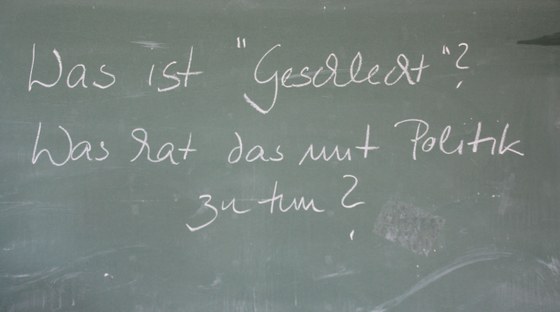 Was ist "Geschlecht"?
Was hat das mit Politik
zu tun?